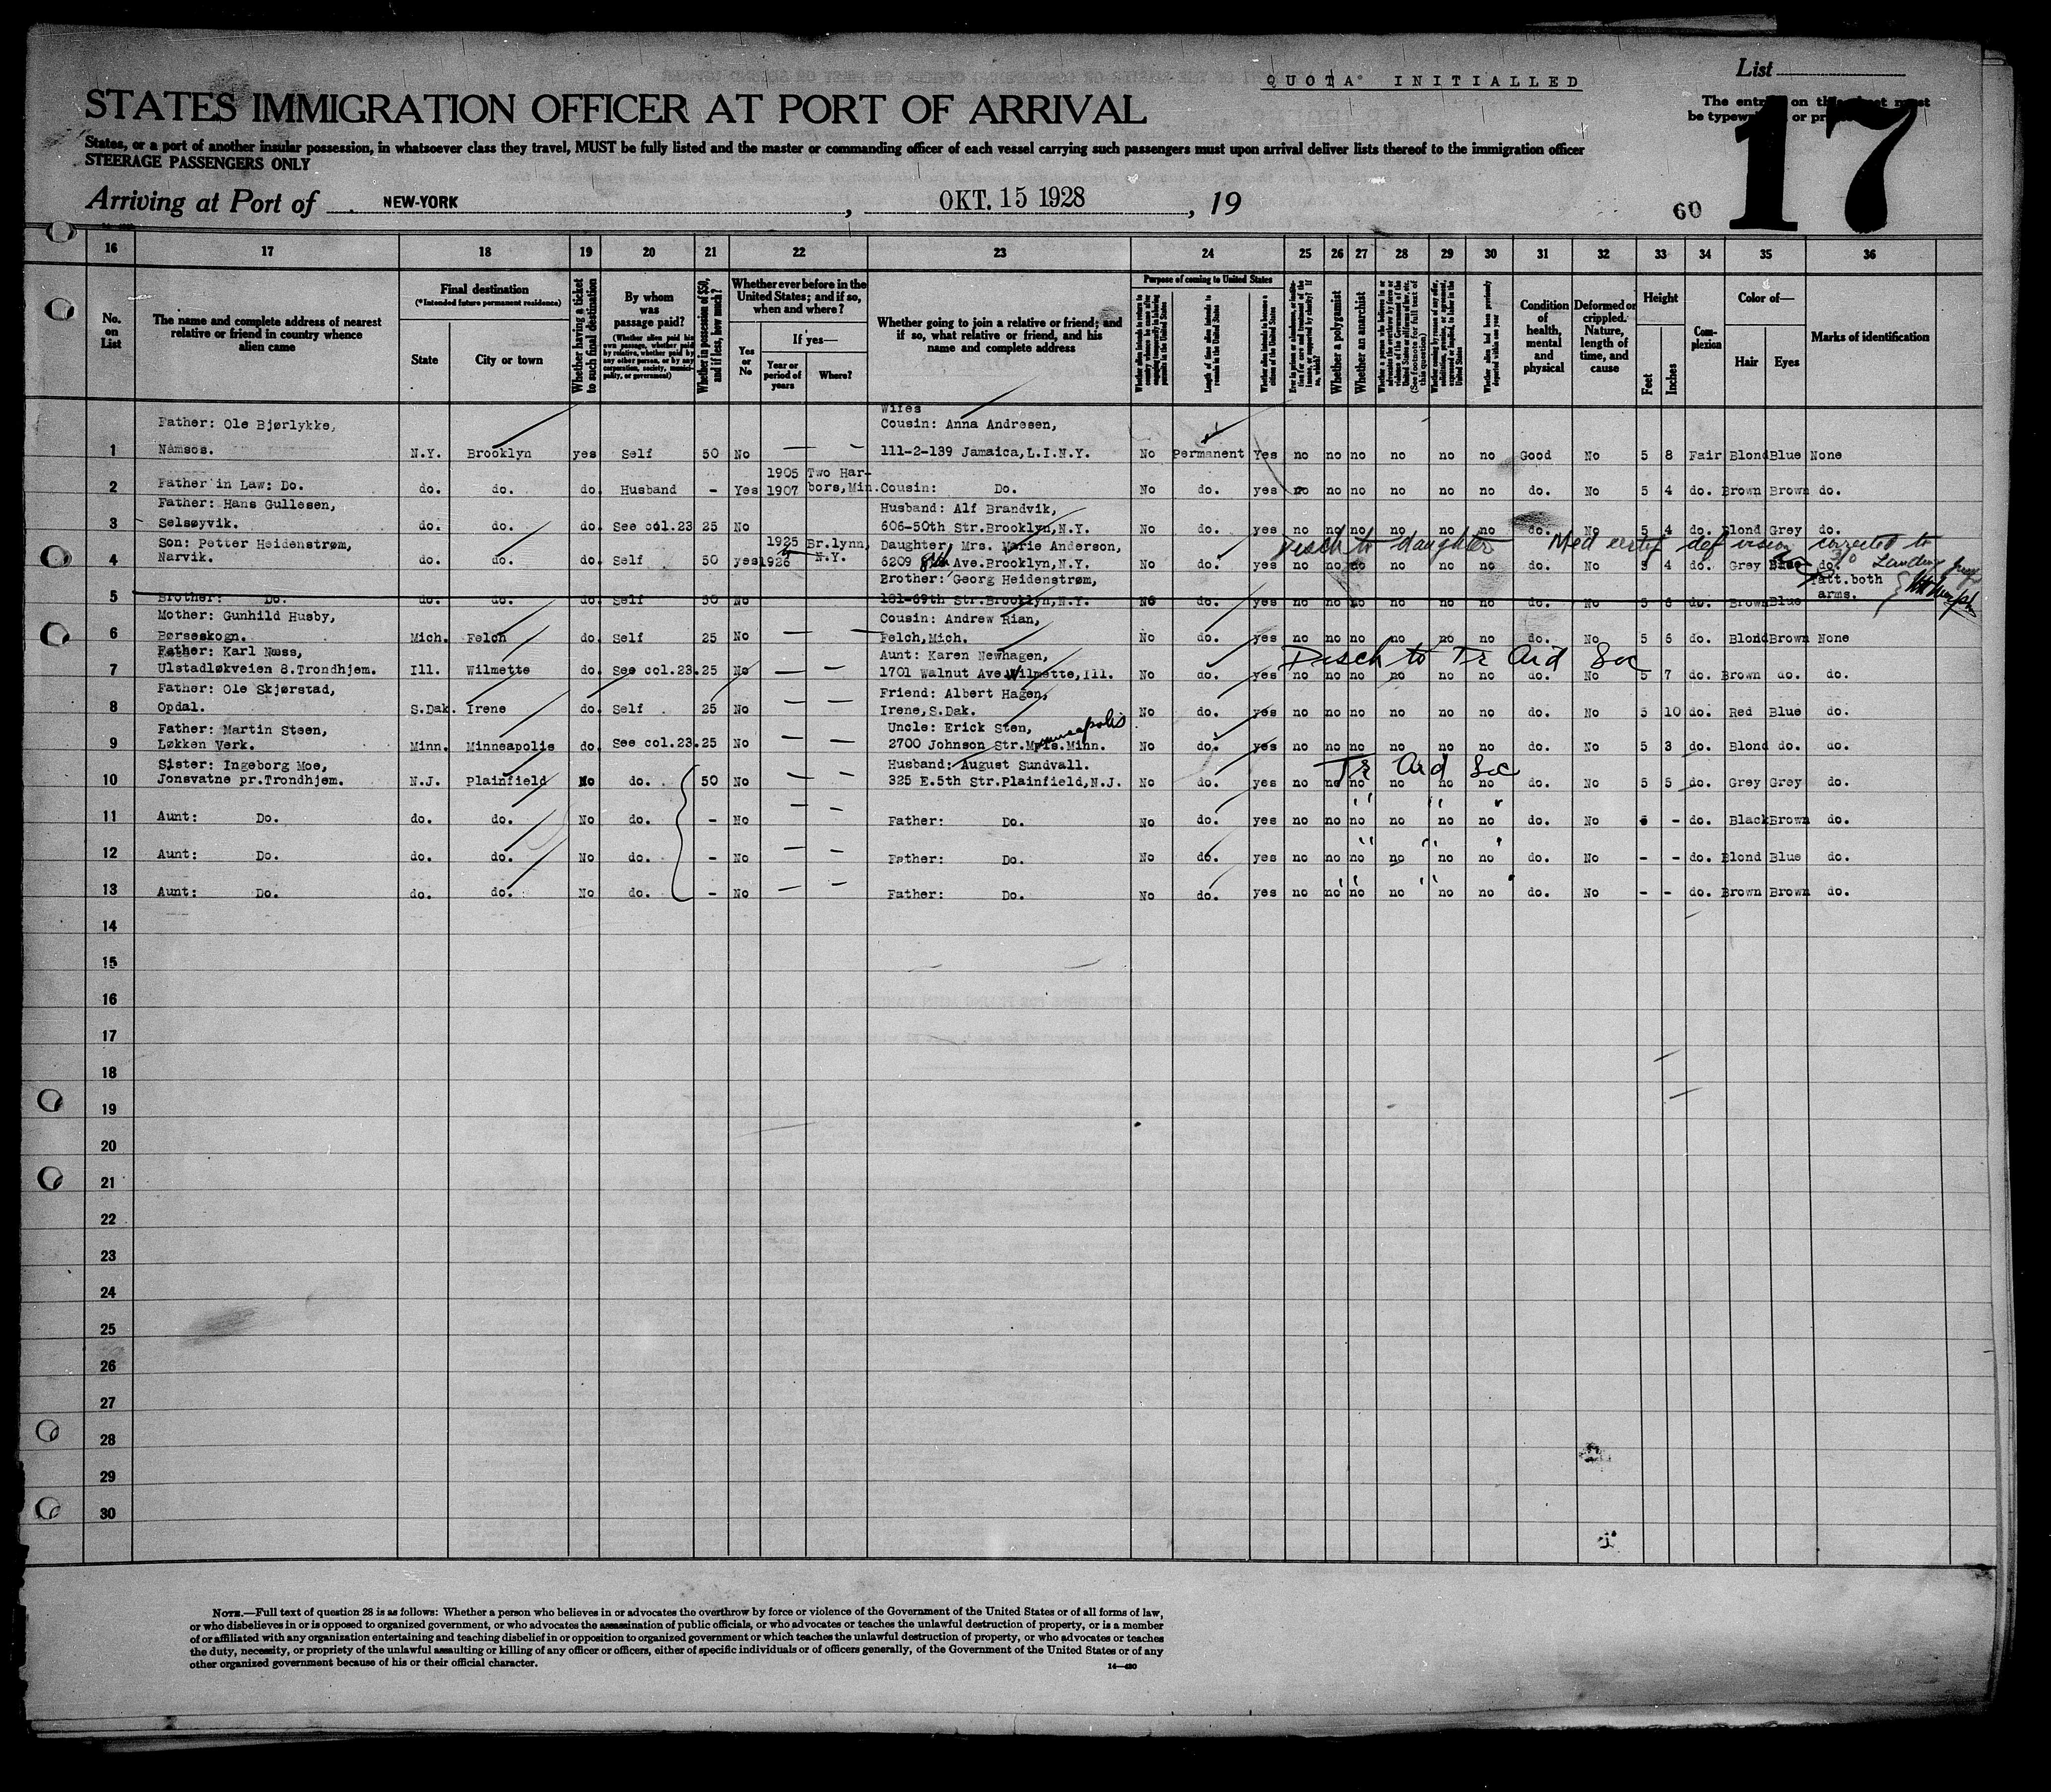 QUOTA INITIALLED
List
STATES IMMIGRATION OFFICER AT PORT OF ARRIVAL
The entries on this sheet must
be typewritten or printed
17
States, or a port of another insular possession, in whatsoever class they travel, MUST be fully listed and the master or commanding officer of each vessel carrying such passengers must upon arrival deliver lists thereof to the immigration officer
STEERAGE PASSENGERS ONLY
Arriving at Port of NEW-YORK, OKT. 15 1928, 19
60
16 17 18 19 20 21 22 23 24 25 26 27 28 29 30 31 32 33 34 35 36
No. on List
The name and complete address of nearest relative or friend in country whence alien came
Final destination
(*Intended future permanent residence)
State
City or town
Whether having a ticket to such final destination
By whom was passage paid?
(Whether alien paid his own passage, whether paid by relative, whether paid by any other person, or by any corporation, society, municipality, or government)
Whether in possession of $50, and if less, how much?
Whether ever before in the United States; and if so, when and where?
Yes or No
If yes—
Year or period of years
Where?
Whether going to join a relative or friend; and if so, what relative or friend, and his name and complete address
Purpose of coming to United States
Length of time alien intends to remain in the United States
Whether alien intends to become a citizen of the United States
Whether a polygamist
Whether an anarchist
Condition of health, mental and physical
Deformed or crippled. Nature, length of time, and cause
Height
Feet
Inches
Complexion
Color of—
Hair
Eyes
Marks of identification
1 Father: Ole Bjørlykke, Namsos. N.Y. Brooklyn yes Self 50 No — — Wifes Cousin: Anna Andresen, 111-2-139 Jamaica,L.I.N.Y. No Permanent Yes no no no no no no Good No 5 8 Fair Blond Blue None
2 Father in Law: Do. do. do. do. Husband - Yes 1905 1907 Two Harbors,Min. Cousin: Do. No do. yes no no no no no no do. No 5 4 do. Brown Brown do.
3 Father: Hans Gullesen, Selsøyvik. do. do. do. See col.23 25 No Husband: Alf Brandvik, 606-50th Str.Brooklyn,N.Y. No do. yes no no no no no no do. No 5 4 do. Blond Grey do.
Disch to daughter Med certif def vision corrected to
4 Son: Petter Heidenstrøm, Narvik. do. do. do. Self 50 yes 1925 1926 Br.lynn, N.Y. Daughter: Mrs. Marie Anderson, 6209 8th Ave.Brooklyn,N.Y. No do. yes no no no no no no do. No 5 4 do. Grey Blue do.
5 Brother: Do. do. do. do. Self 50 No Brother: Georg Heidenstrøm, 181-69th Str.Brooklyn,N.Y. No do. yes no no no no no no do. No 5 6 do. Brown Blue Tatt.both arms.
6 Mother: Gunhild Husby, Børseskogn. Mich. Felch do. Self 25 No — — Cousin: Andrew Rian, Felch,Mich. No do. yes no no no no no no do. No 5 6 do. Blond Brown None
Disch to Tr Aid Soc
7 Father: Karl Næss, Ulstadløkveien 8.Trondhjem. Ill. Wilmette do. See col.23. 25 No — — Aunt: Karen Newhagen, 1701 Walnut Ave.Wilmette,Ill. No do. yes no no no no no no do. No 5 7 do. Brown do. do.
8 Father: Ole Skjørstad, Opdal. S.Dak. Irene do. Self 25 No — — Friend: Albert Hagen, Irene,S.Dak. No do. yes no no no no no no do. No 5 10 do. Red Blue do.
9 Father: Martin Steen, Løkken Verk. Minn. Minneapolis do. See col.23. 25 No — — Uncle: Erick Sten, 2700 Johnson Str.Mpls.Minn. No do. yes no no no no no no do. No 5 3 do. Blond do. do.
Tr Aid Soc
10 Sister: Ingeborg Moe, Jonsvatne pr.Trondhjem. N.J. Plainfield No do. 50 No — — Husband: August Sundvall. 325 E.5th Str.Plainfield,N.J. No do. yes no no no no no no do. No 5 5 do. Grey Grey do.
11 Aunt: Do. do. do. No do. - No — — Father: Do. No do. yes no no no no no no do. No - do. Black Brown do.
12 Aunt: Do. do. do. No do. - No — — Father: Do. No do. yes no no no no no no do. No - - do. Blond Blue do.
13 Aunt: Do. do. do. No do. - No — — Father: Do. No do. yes no no no no no no do. No - - do. Brown Brown do.
14
15
16
17
18
19
20
21
22
23
24
25
26
27
28
29
30
NOTE.—Full text of question 28 is as follows: Whether a person who believes in or advocates the overthrow by force or violence of the Government of the United States or of all forms of law,
or who disbelieves in or is opposed to organized government, or who advocates the assassination of public officials, or who advocates or teaches the unlawful destruction of property, or is a member
of or affiliated with any organization entertaining and teaching disbelief in or opposition to organized government or which teaches the unlawful destruction of property, or who advocates or teaches
the duty, necessity, or propriety of the unlawful assaulting or killing of any officer or officers, either of specific individuals or of officers generally, of the Government of the United States or of any
other organized government because of his or their official character.
14—420